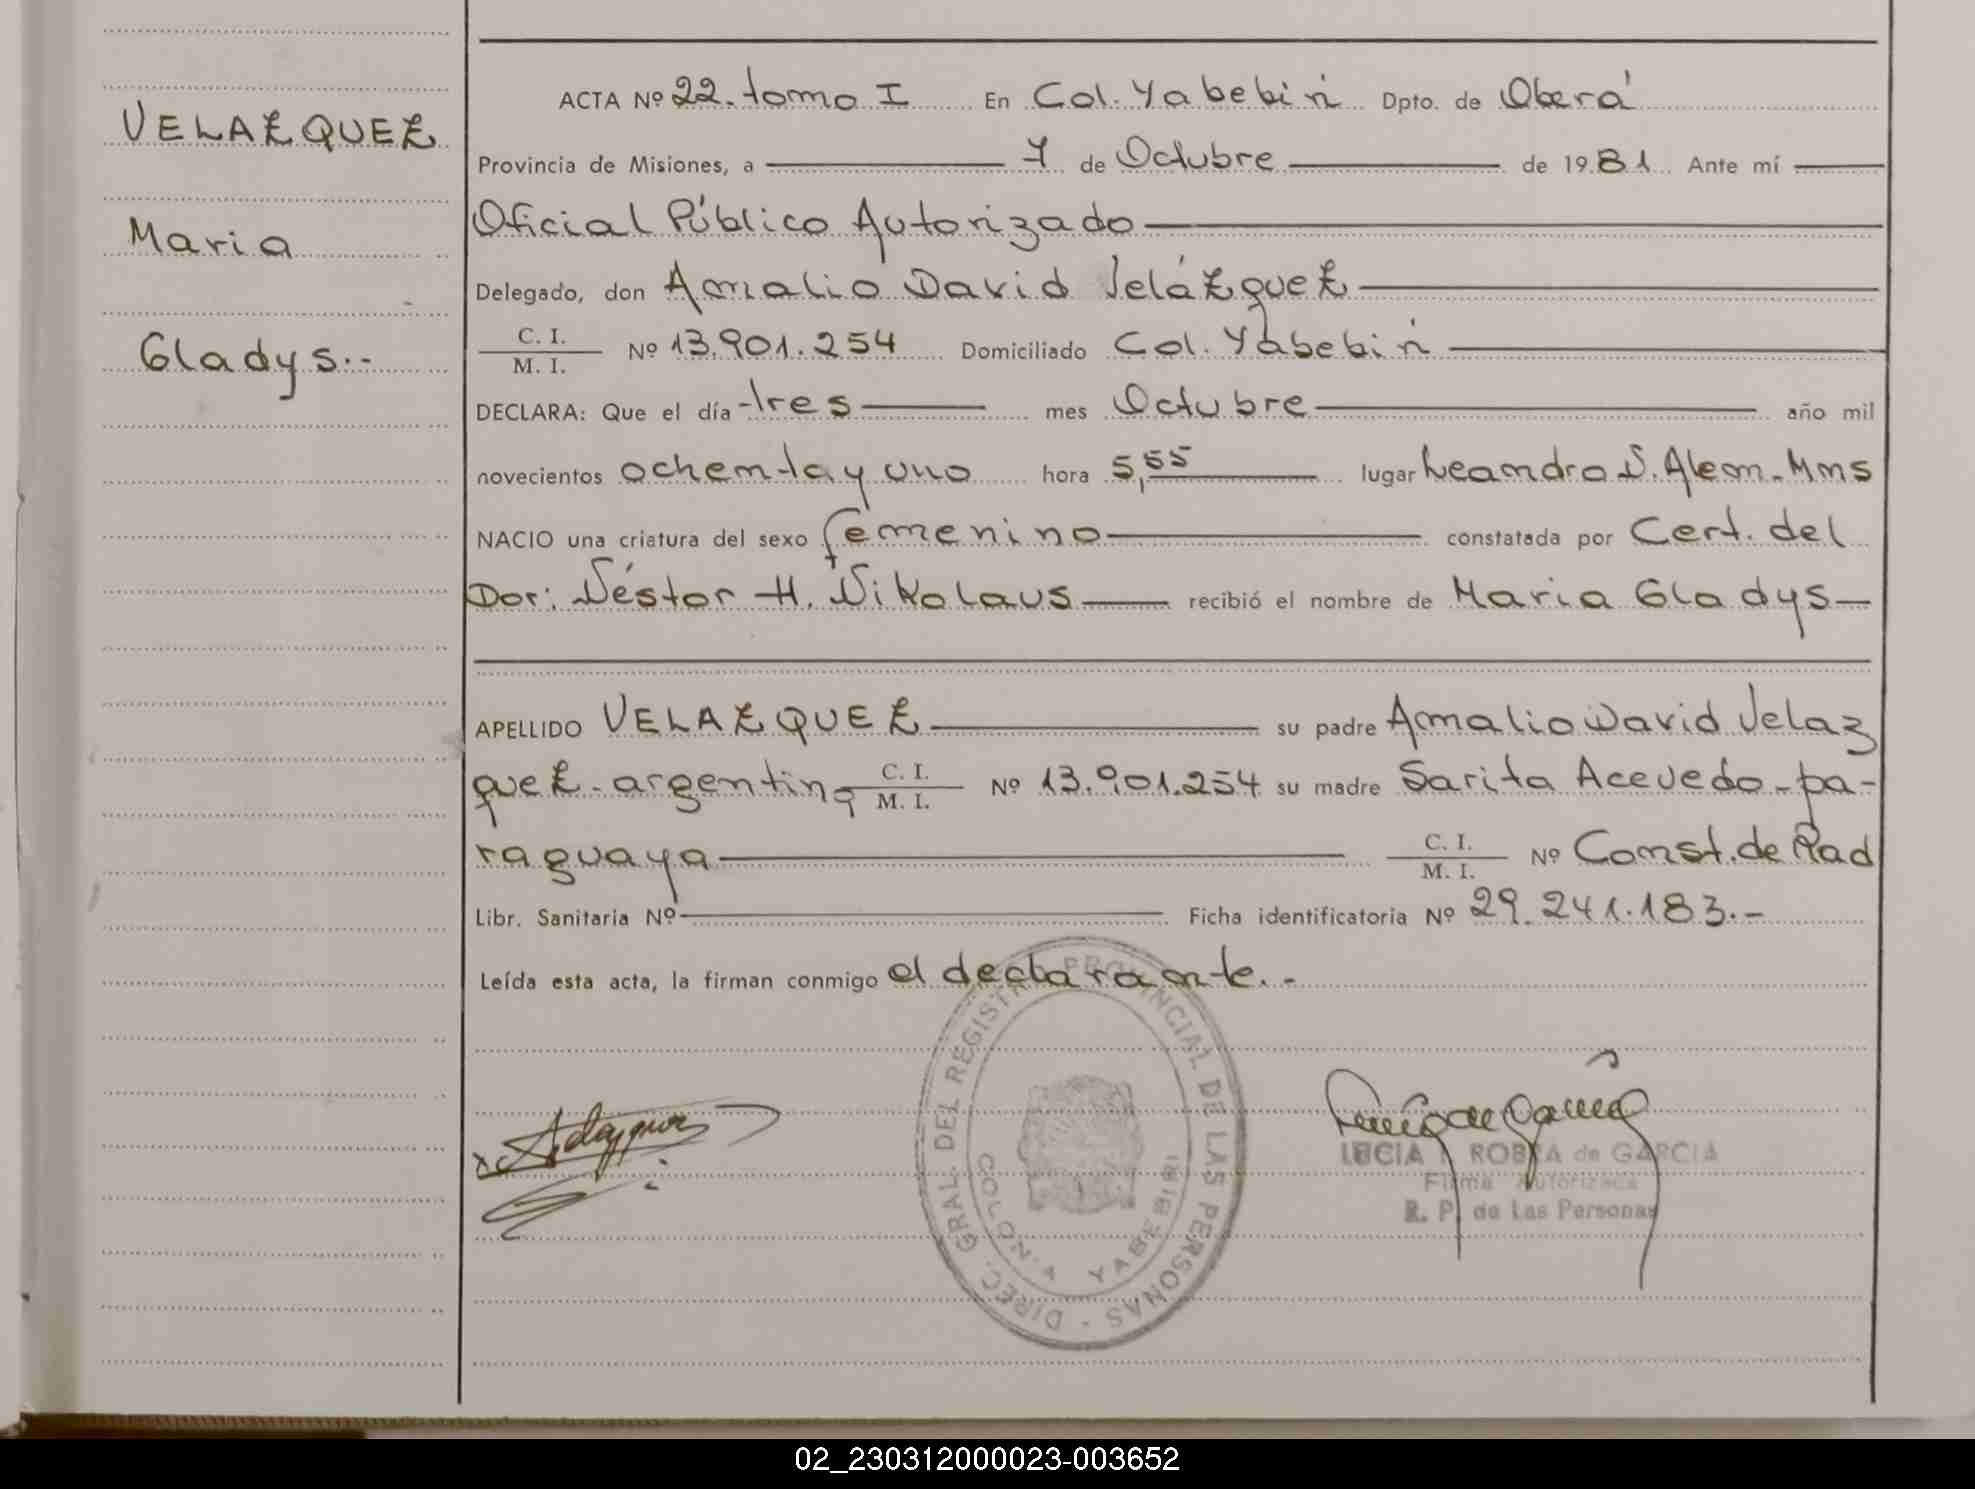 VELAZQUEZ
Maria
Gladys.--
ACTA Nº 22. tomo I En Col. Yabebirí Dpto. de Oberá
Provincia de Misiones, a 7 de Octubre de 1981 Ante mí
Oficial Público Autorizado
Delegado, don Amalio David Velázquez
C. I.
M. I. Nº 13.901.254 Domiciliado Col. Yabebirí
DECLARA: Que el día tres mes Octubre año mil
novecientos ochenta y uno hora 5,55 lugar Leandro N. Alem. Mnes
NACIO una criatura del sexo femenino constatada por Cert. del
Dor: Néstor H. Nikolaus recibió el nombre de Maria Gladys
APELLIDO VELAZQUEZ su padre Amalio David Velaz
quez - argentino C. I. M. I. Nº 13.901.254 su madre Sarita Acevedo - pa-
raguaya C. I. M. I. Nº Const. de Rad
Libr. Sanitaria Nº Ficha identificatoria Nº 29.241.183.-
Leída esta acta, la firman conmigo el declarante.-
DIREC. GRAL. DEL REGISTRO PROVINCIAL DE LAS PERSONAS -
COLONIA YABEBIRI
LUCIA ROBRA de GARCIA
Firma Autorizada
R. P. de Las Personas
02_230312000023-003652